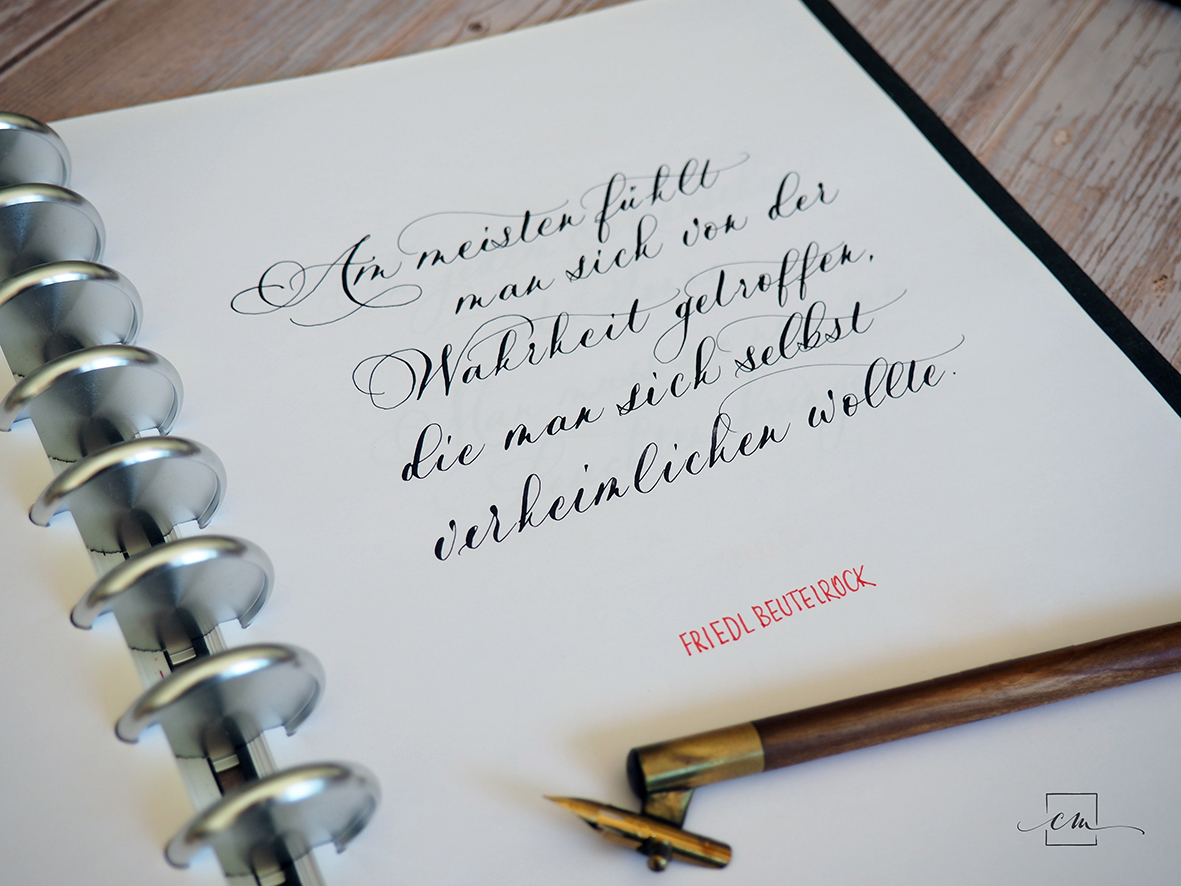 Am meisten fühlt
man sich von der
Wahrheit getroffen,
die man sich selbst
verheimlichen wollte.
FRIEDL BEUTELROCK
cm